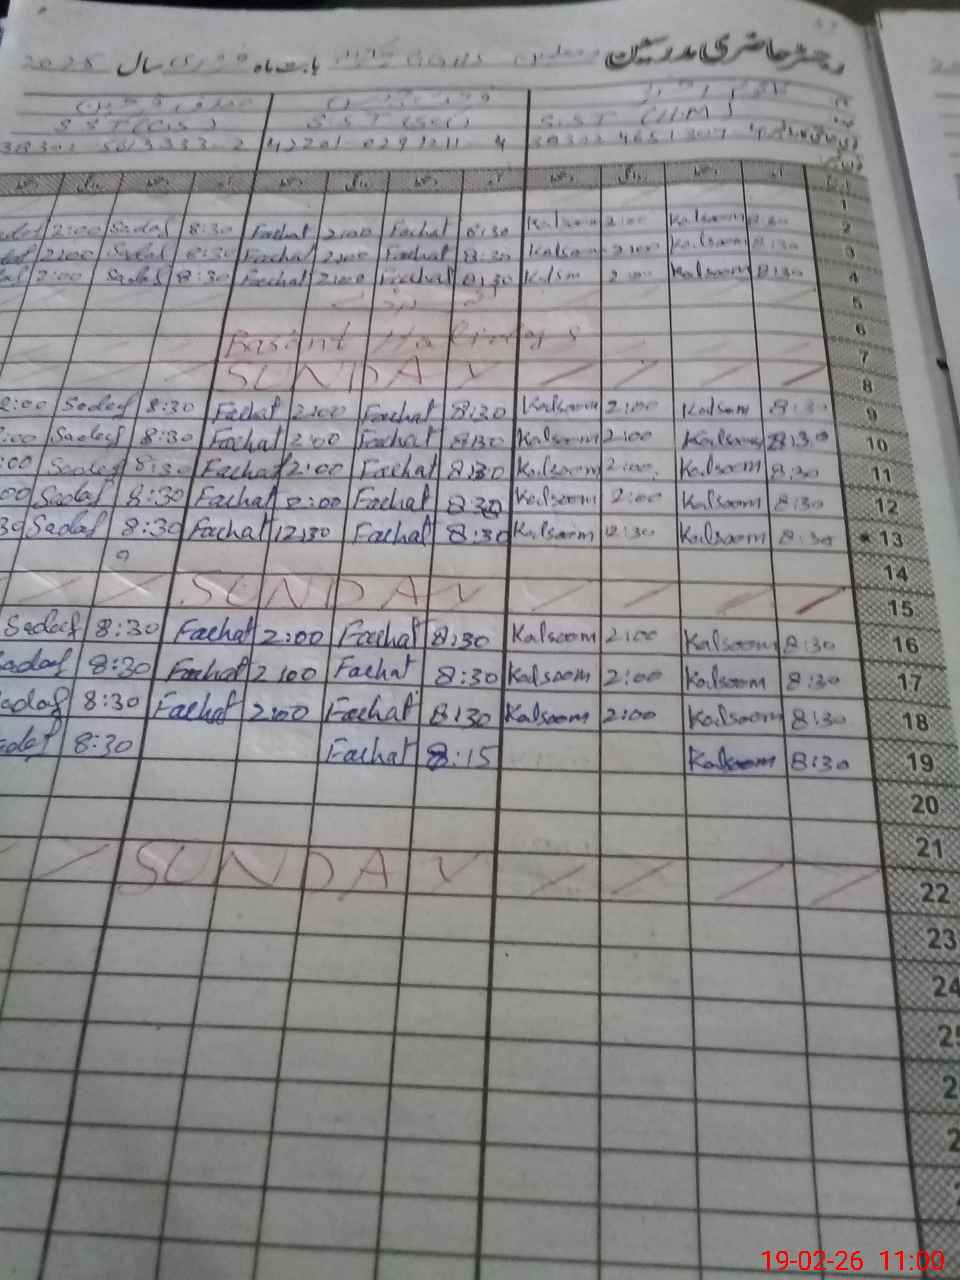 رجسٹر حاضری مدرسین بابت ماہ فروری سال 2025
S.S.T (C.S) S.S.T (Sci) S.S.T (H.M)
1
2:00 Sadaf 8:30 Fachat 2:00 Fachat 8:30 Kalsoom 2:00 Kalsoom 8:30 2
2:00 Sadaf 8:30 Fachat 2:00 Fachat 8:30 Kalsoom 2:00 Kalsoom 8:30 3
2:00 Sadaf 8:30 Fachat 2:00 Fachat 8:30 Kalsm 2:00 Kalsoom 8:30 4
5
6
Basant Holidays 7
SUNDAY 8
2:00 Sadaf 8:30 Fachat 2:00 Fachat 8:30 Kalsoom 2:00 Kalsom 8:30 9
:00 Sadaf 8:30 Fachat 2:00 Fachat 8:30 Kalsoom 2:00 Kalsoom 8:30 10
:00 Sadaf 8:30 Fachat 2:00 Fachat 8:30 Kalsoom 2:00 Kalsoom 8:30 11
00 Sadaf 8:30 Fachat 2:00 Fachat 8:30 Kalsoom 2:00 Kalsoom 8:30 12
30 Sadaf 8:30 Fachat 12:30 Fachat 8:30 Kalsoom 12:30 Kalsoom 8:30 13
14
SUNDAY 15
Sadaf 8:30 Fachat 2:00 Fachat 8:30 Kalsoom 2:00 Kalsoom 8:30 16
adaf 8:30 Fachat 2:00 Fachat 8:30 Kalsoom 2:00 Kalsoom 8:30 17
adaf 8:30 Fachat 2:00 Fachat 8:30 Kalsoom 2:00 Kalsoom 8:30 18
daf 8:30 Fachat 8:15 Kalsoom 8:30 19
20
21
SUNDAY 22
23
24
25
2
2
19-02-26 11:00